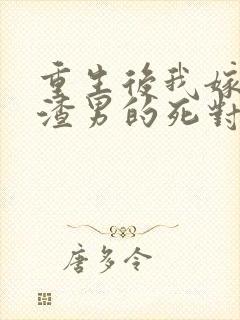 重生後我嫁
渣男的死對
唐多令